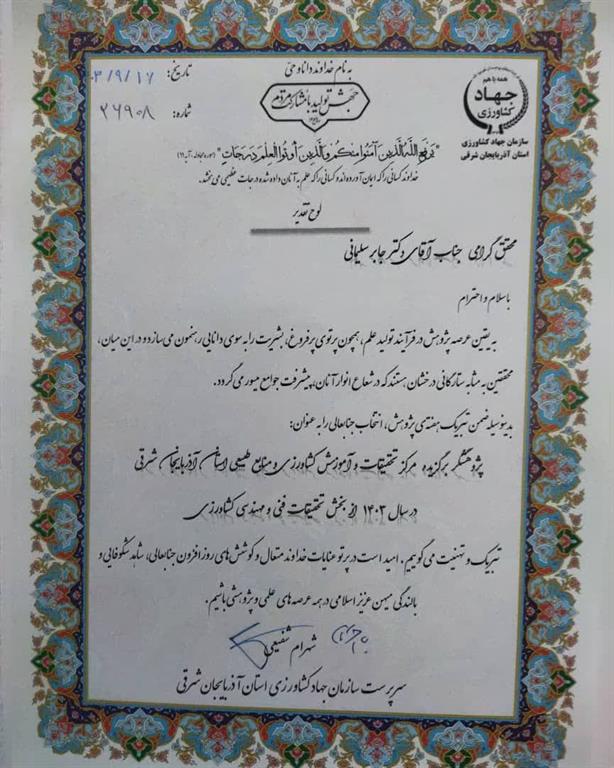 به نام خداوند دانا و حی
تاریخ: ۰۳/۹/۱۷
شماره: ۲۶۹۰۸
جهش تولید با مشارکت مردم
همه با هم
جهاد
کشاورزی
سازمان جهاد کشاورزی
استان آذربایجان شرقی
"یَرفَعِ اللَّهُ الَّذینَ آمَنُوا مِنکُم وَالَّذینَ أُوتُوا العِلمَ دَرَجَاتٍ" (سوره مجادله، آیه ۱۱)
خداوند کسانی را که ایمان آورده‌اند و کسانی را که علم به آنان داده شده درجات عظیمی می‌بخشد.
لوح تقدیر
محقق گرامی جناب آقای دکتر جابر سلیمانی
با سلام و احترام
به یقین عرصه پژوهش در فرآیند تولید علم، همچون پرتوی پر فروغ، بشریت را به سوی دانایی رهنمون می‌سازد و در این میان،
محققین به مثابه ستارگانی درخشان هستند که در شعاع انوار آنان، پیشرفت جوامع میسور می‌گردد.
بدینوسیله ضمن تبریک هفته‌ی پژوهش، انتخاب جنابعالی را به عنوان:
پژوهشگر برگزیده مرکز تحقیقات و آموزش کشاورزی و منابع طبیعی استان آذربایجان شرقی
در سال ۱۴۰۳ از بخش تحقیقات فنی و مهندسی کشاورزی
تبریک و تهنیت می‌گوییم. امید است در پرتو عنایات خداوند متعال و کوشش‌های روز افزون جنابعالی، شاهد شکوفایی و
بالندگی میهن عزیز اسلامی در همه عرصه‌های علمی و پژوهشی باشیم.
شهرام شفیعی
سرپرست سازمان جهاد کشاورزی استان آذربایجان شرقی